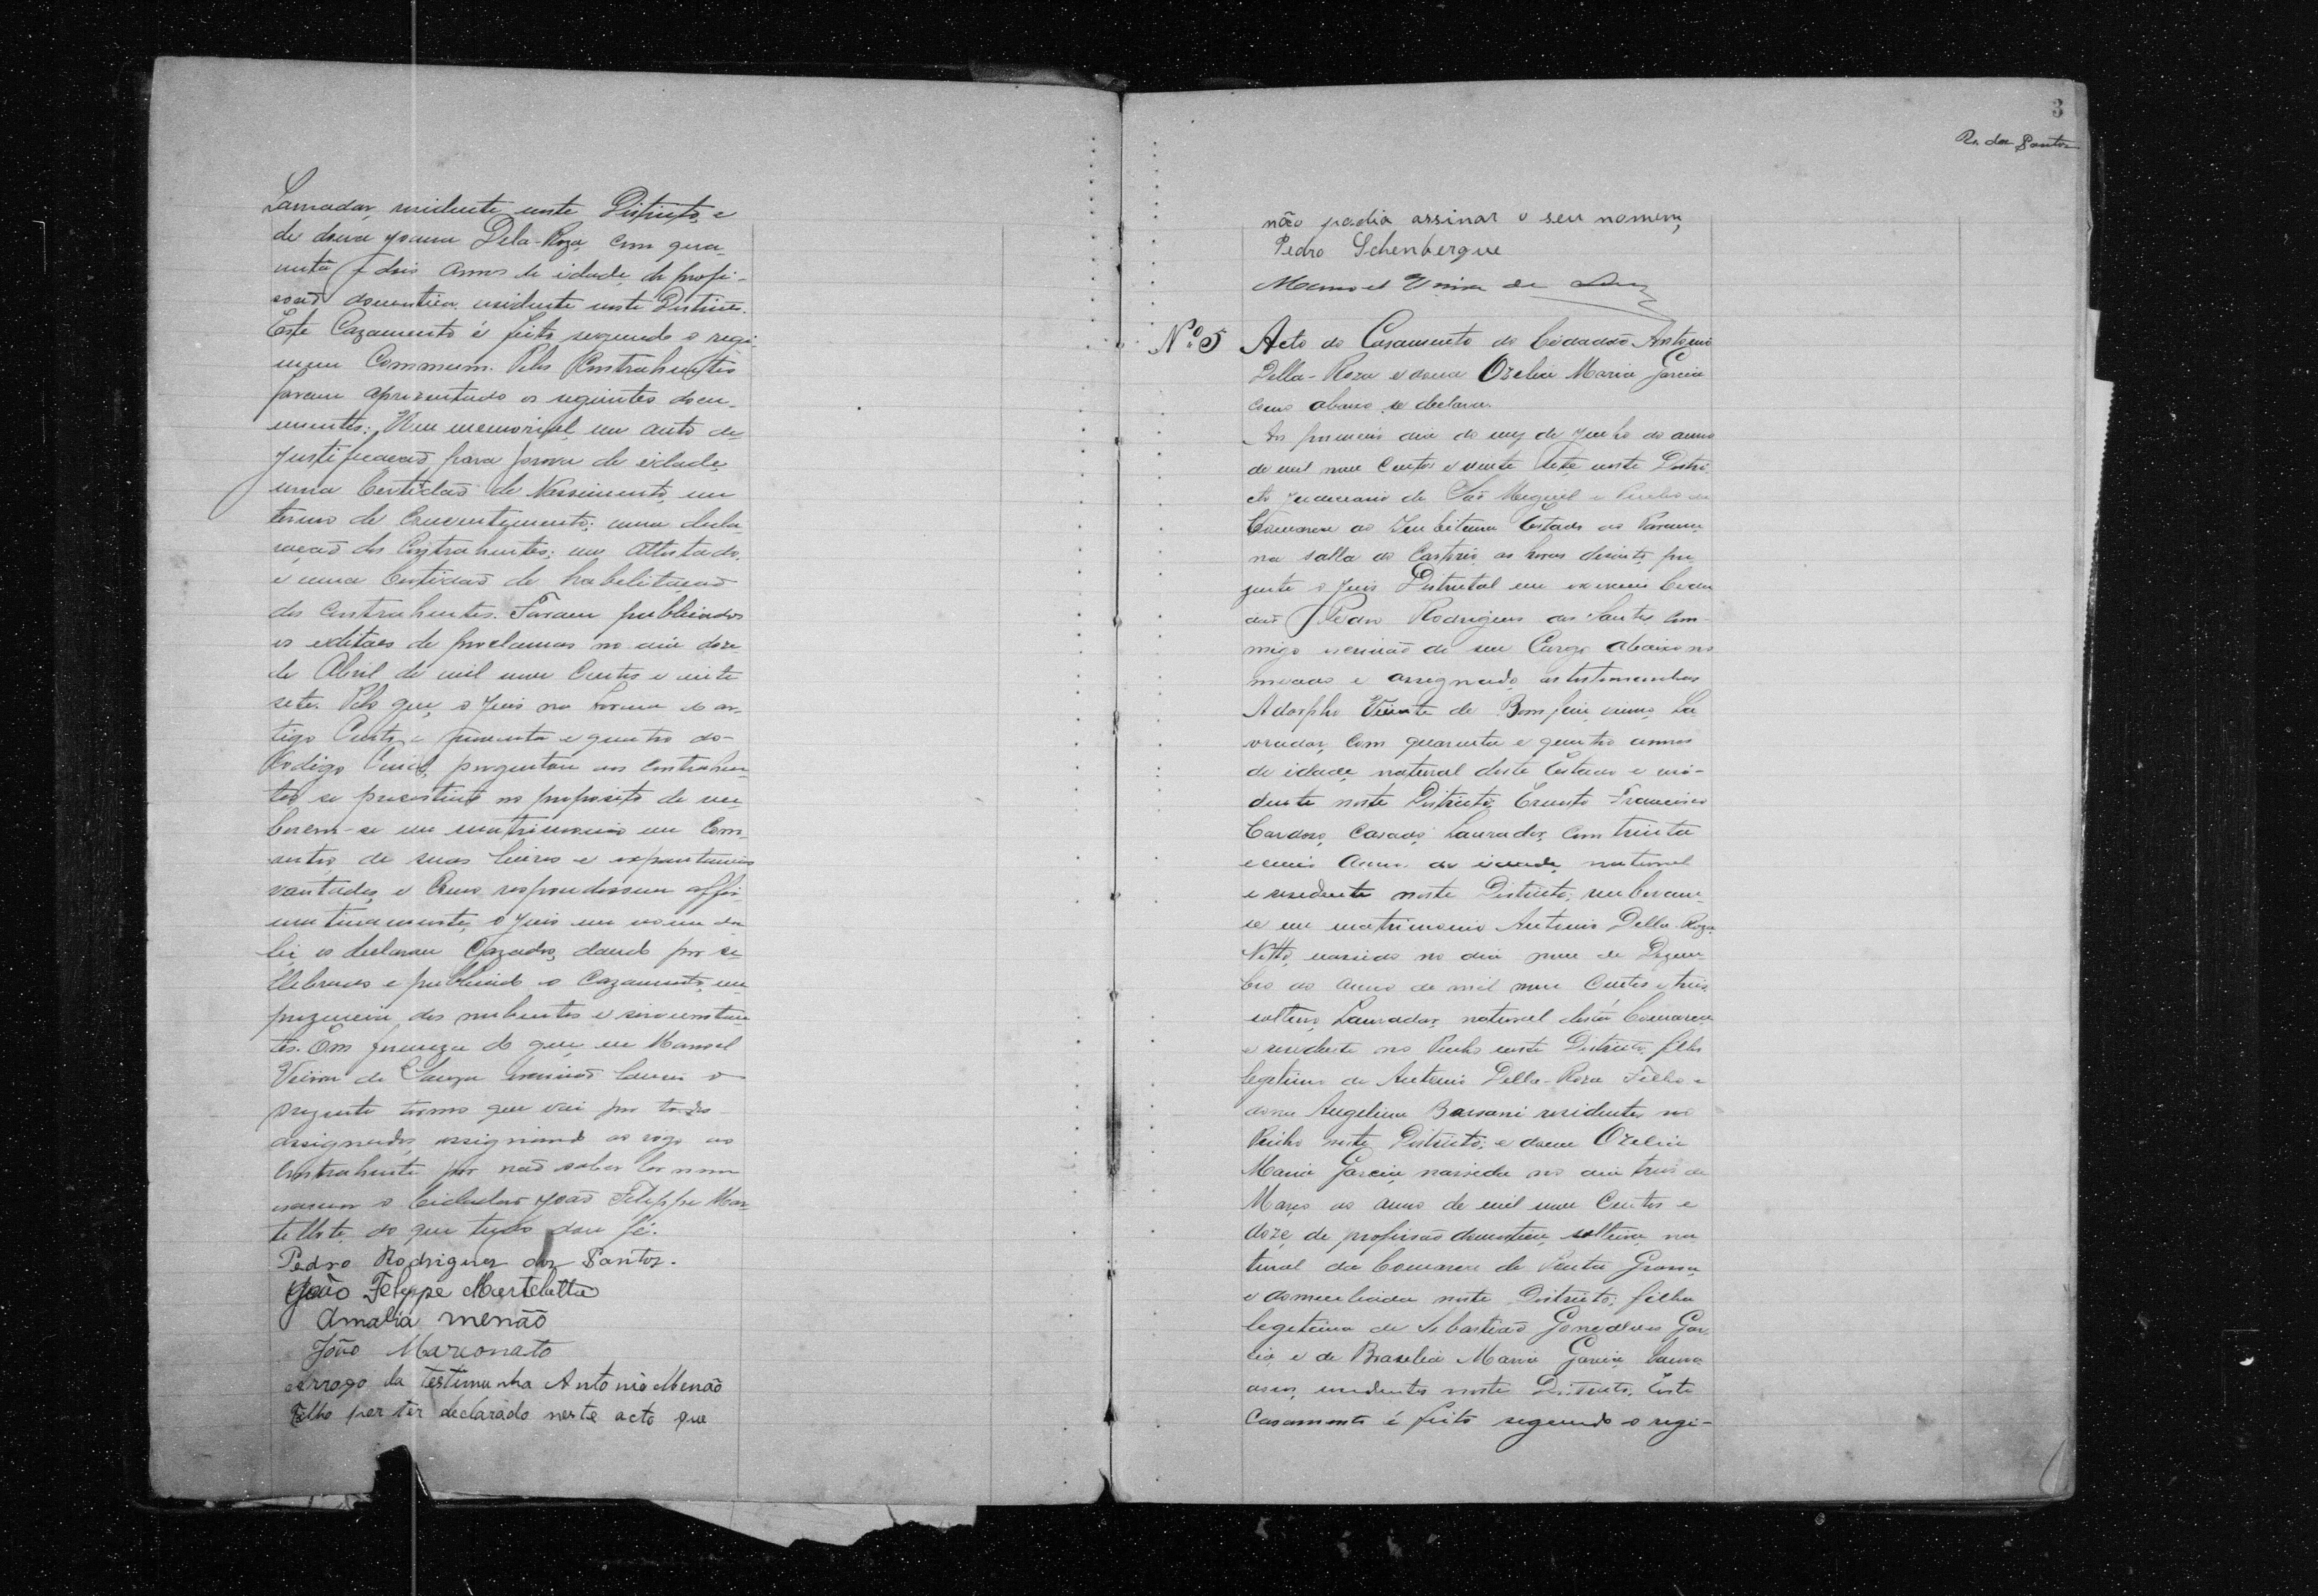 Lavrador, residente neste Districto, e
de dona Joana Dela-Roza, com qua-
renta e dois annos de idade, de profi-
soão domestica, residente neste Districto.
Este Cazamento é feito segundo o regi-
men Commum. Pelos Contrahentes
foram apresentado os seguintes docu-
mentos: Um memorial, um auto de
justificacaõ para prova de eidade
uma Certidaõ de Nascimento, um
termo de Consentimento; uma decla-
racaõ dos Contrahentes; um Attestado,
e uma Certidaõ de habelitaçaõ
dos contrahentes. Foram publicados
os editaes de proclamas no dia doze
de Abril de mil nove Centos e vinte
sete. Pelo que, o Juis na forma do ar-
tigo Cento e noventa e quatro do
Codigo Civil, preguntou aos Contrahen-
tes se presestiaõ no proposito de re-
berem-se em matrimonio um Com
outro, de suas livres e expontanias
vontades, e Como respondessem affir-
mativamente, o Juis em nome da
lei os declarou Cazados, dando por ce-
llebrado e publicado o Cazamento, em
prezencia dos nubentes e sircunstan-
tes. Em firmeza do que, eu Manoel
Vieira de Souza escrivaõ lavrei o
prezente termo que vai por todos
assignados, assignando ao rogo do
Contrahente por naõ saber ler nem
o Cidadaõ Joaõ Felippe Mar-
tellote, do que tudo dou fé.
Pedro Rodrigues dos Santos.
João Felippe Martelotte
Amalia menão
João Marconato
Arrogo da Testimunha Antonio Menão
Filho por ter declarado neste acto que
3
R. dos Santos
não podia assinar o seu nomem,
Pedro Schenbergue
Manoel Vieira de Souza
Nº 5 Acto do Casamento do Cidadaõ Antonio
Della-Roza e dona Ozelia Maria Garcia
como abaxo se declara.
Ao primeiro dia do mez de Junho do anno
de mil nove Centos e vinte sete, neste Distri
cto Judiciario de São Meguel e Pinho da
Comarca de Imbituva Estado do Parana
na salla do Cartorio, as horas, pre
zente o Juis Destrictal em exercicio Cida
daõ Pedro Rodrigues dos Santos, Com-
migo escrivaõ de seu Cargo abaixo no
meado e assegnado, as testemunhas
Adorpho Vicente de Bomfim, viuvo, La
vrador, Com quarenta e quatro annos
de idade, natural deste Estado e resi-
dente neste Districto; Ernesto Francisco
Cardoso, Casado, Lavrador, Com trinta
e annos de idade, natural
e residente neste Districto; reseberam-
se em matrimonio Antonio Della-Roza
Netto, nascido no dia nove de Dezem-
bro do anno de mil nove Centos e tres,
solteiro, Lavrador, natural desta Comarca
e residente no Pinho neste Districto, filho
legitimo de Antonio Della-Roza Filho e
dona Angelina Barsani residentes no
Pinho neste Districto; e dona Ozelia
Maria Garcia, nascida no dia tres de
Março do anno de mil nove Centos e
doze, de profissaõ domestica, solteira, na
tural da Comarca de Ponta Grossa,
e domeciliada neste Districto; filha
legitima de Sebastiaõ Gonçalves Gar-
cia, e de Brasilia Maria Garcia,
residentes neste Districto. Este
Casamento é feito segundo o regi-